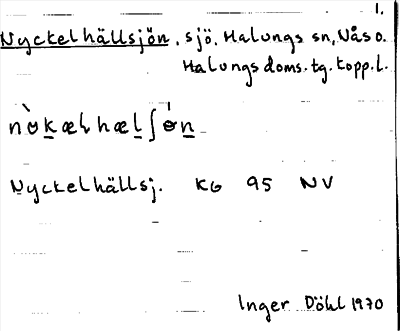 1.
Nyckelhällsjön, sjö, Malungs sn, Nås o.
Malungs doms. tg. Kopp. l.
Nyckelhällsj. KG 95 NV
Inger Döhl 1970